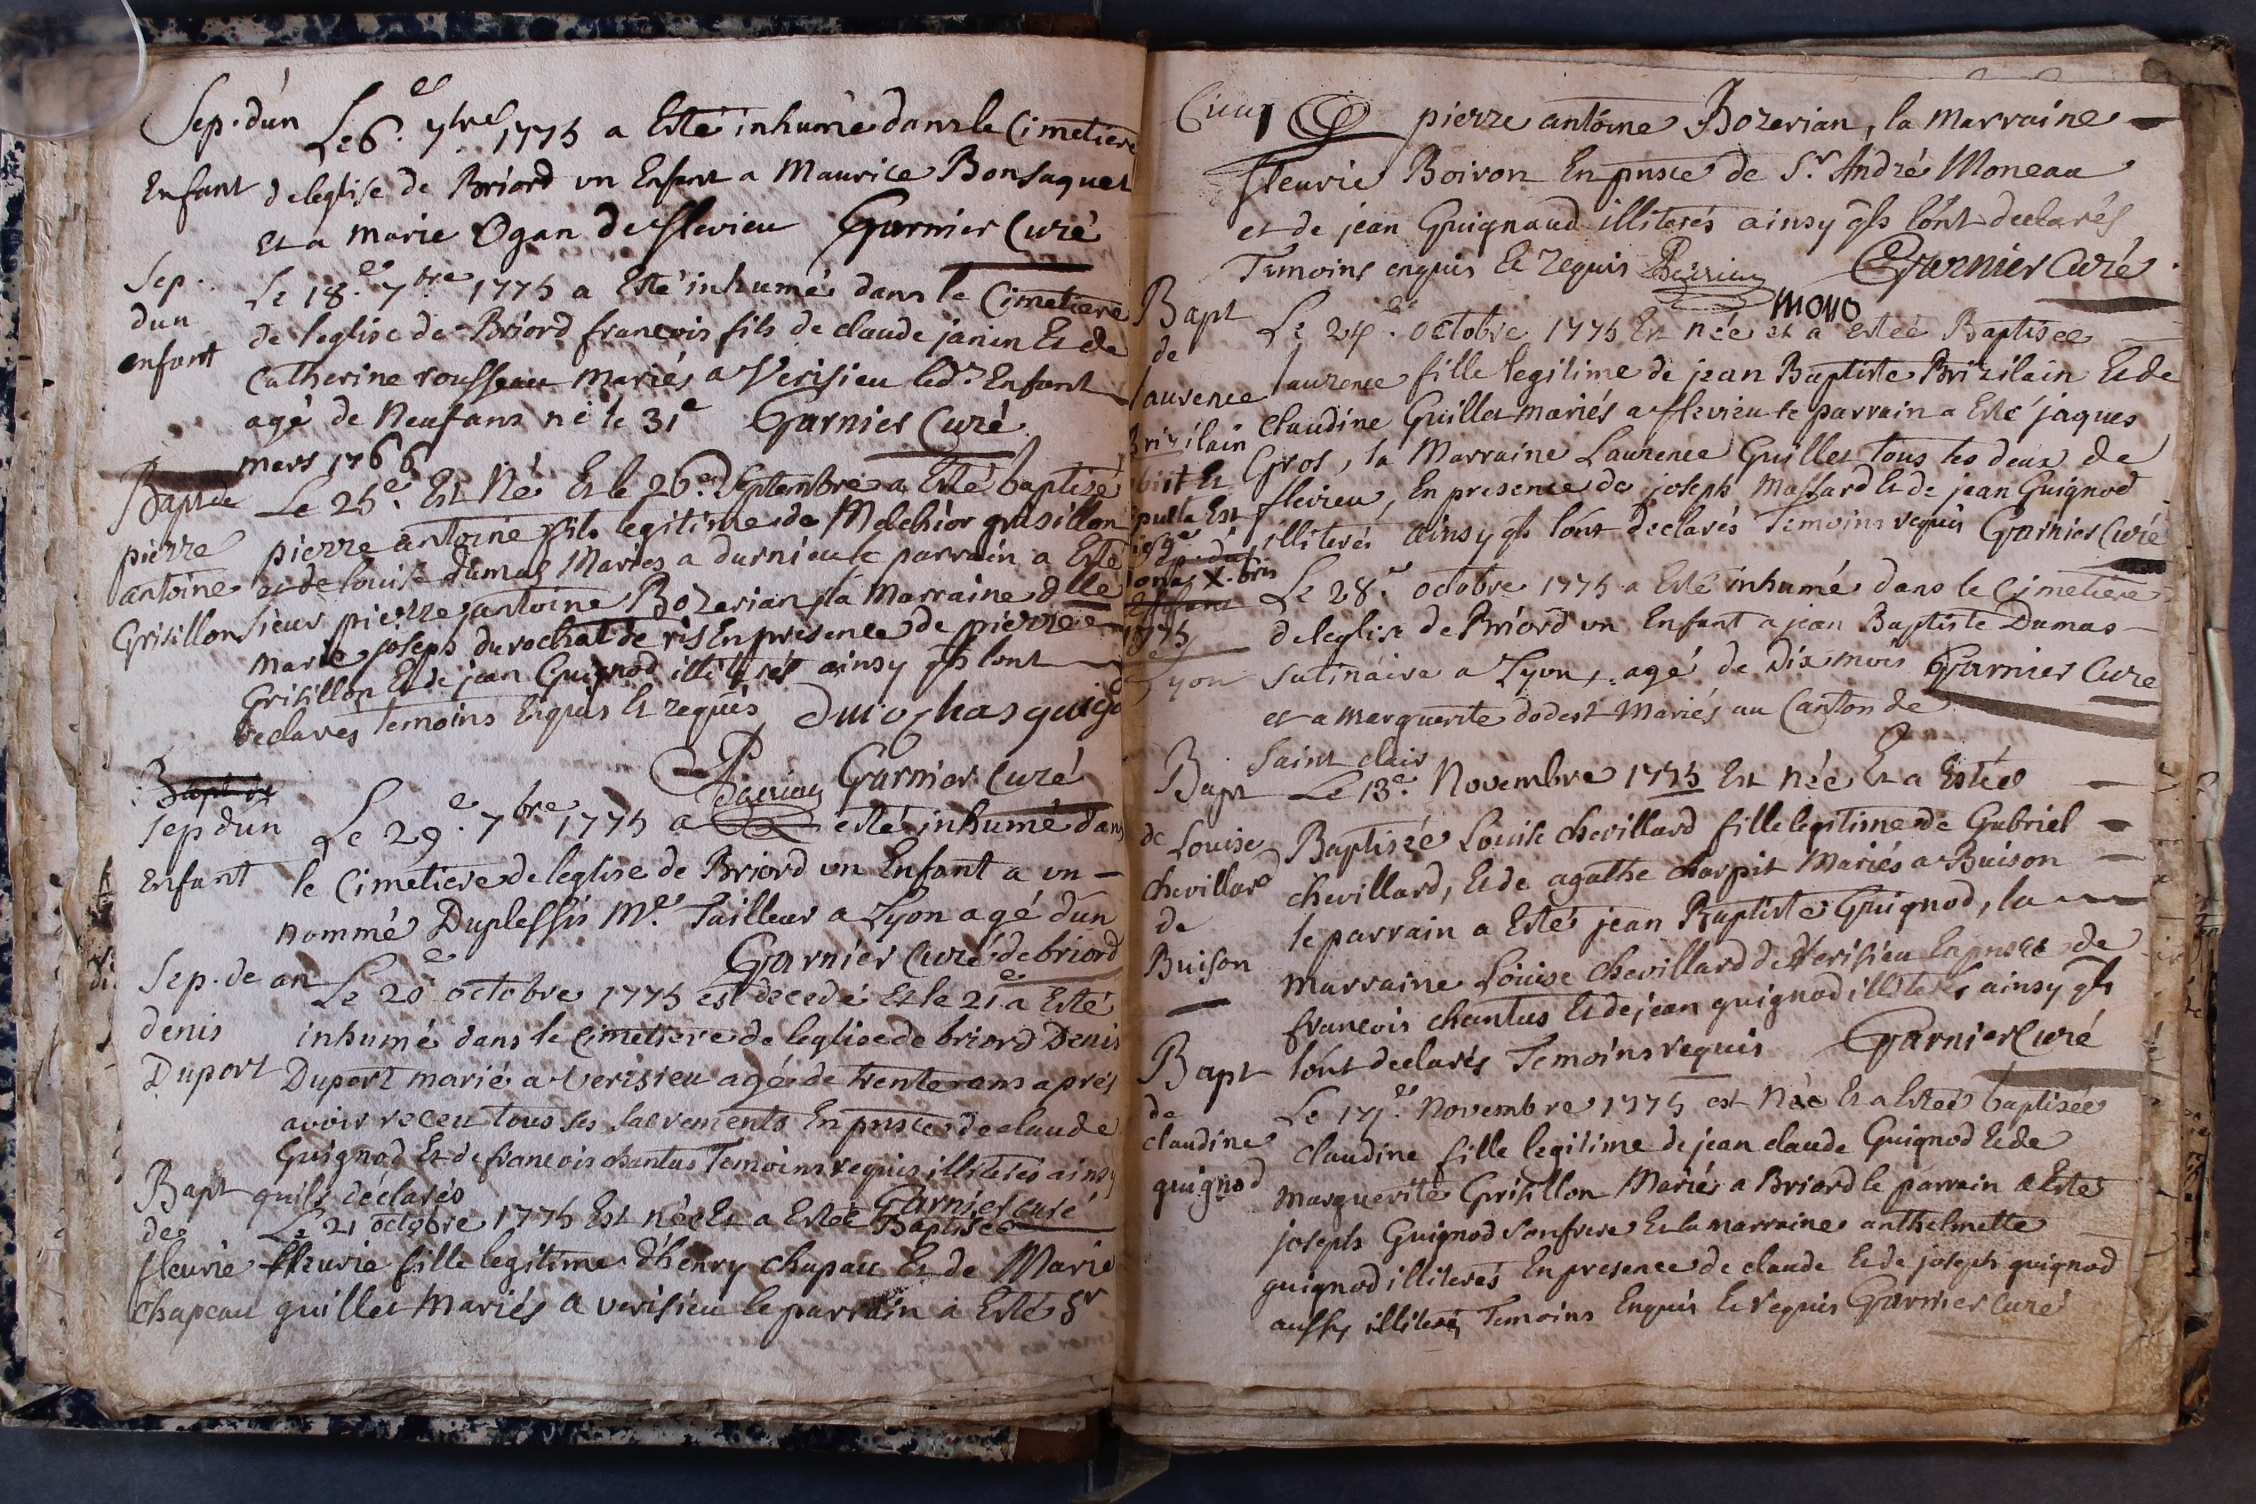 Sep. d'un
Enfant
Le 6.e 7bre 1775 a Esté inhumé dans le Cimetiere
de leglise de Briord un Enfant a Maurice Bonsaquet
Et a marie Ogan de flevieu Garnier Curé
Sep.
dun
enfant
Le 18.e 7bre 1775 a Esté inhumé dans le Cimetiere
de leglise de Briord francois fils de claude janin Et de
Catherine rousseau mariés a Verisieu led.t Enfant
agé de Neuf ans né le 31e Garnier Curé
mars 1766
Bapt de
pierre
antoine
Grisillon
Le 25.e Est Né Et le 26.e Septembre a Esté baptisé
pierre antoine fils legitime de Melchior grisillon
et de louise dumas Mariés a durnieu le parrain a Esté
sieur pierre antoine Bozerian, la Marraine dlle
Marie joseph du rochat de ris En presence de pierre
Grisillon Et de jean Guignod illiterés ainsy qls lont
declarés Temoins Enquis Et requis
Garnier Curé
Bapt de
Sep dun
Enfant
Le 29.e 7bre 1775 a esté inhumé dans
le Cimetiere de leglise de Briord un Enfant a un
nommé Duplessis M.e Tailleur a Lyon agé d'un
an Garnier Curé de briord
Sep. de
denis
Duport
Le 20e octobre 1775 est decedé Et le 21e a Esté
inhumé dans le Cimetiere de leglise de briord Denis
Duport marié a Verisieu agé de trente ans aprés
avoir receu tous ses sacrements En pnsce de claude
Guignod Et de francois chantus Temoins requis illiterés ainsy
quils déclarés Garnier curé
Bapt
de
fleurie
chapeau
Le 21 octobre 1775 Est née Et a Estée Baptisée
fleurie fille legitime d'henry chapau Et de Marie
guillet Mariés a verisieu le parrain a Esté Sr
pierre antoine Bozerian, la Marraine
fleurie Boiron En pnsce de Sr. André Moneau
et de jean Guignaud illiterés ainsy qls lont declarés
Temoins enquis Et requis Bozerian Garnier Curé
Bapt
de
laurence
Brizilain
1775
Le 24.e octobre 1775 Est née et a estée Baptisée
laurence fille legitime de jean Baptiste Brizilain Et de
claudine Guillet mariés a flevieu le parrain a Esté jaques
Gros, la Marraine Laurence Guillet tous les deux de
flevieu, En presence de joseph Massard Et de jean Guignod
illiterés ainsy qls lont declarés Temoins requis Garnier Curé
Lyon
Le 28.e octobre 1775 a Esté inhumé dans le Cimetiere
de leglise de Briord un Enfant a jean Baptiste Dumas
satinaire a Lyon, agé de Dix mois Garnier Curé
et a marguerite dodest Mariés au Canton de
Saint clair
Bapt
de Louise
chevillard
de
Buison
Le 13.e Novembre 1775 Est née Et a Estée
Baptisée Louise chevillard fille legitime de Gabriel
chevillard, Et de agathe charpit Mariés a Buison
le parrain a Esté jean Baptiste Guignod, la
marraine Louise chevillard de Verisieu En pnsce de
francois chantus Et de jean guignod illiterés ainsy qls
lont declarés Temoins requis Garnier Curé
Bapt
de
claudine
guignod
Le 17.e Novembre 1775 est Née Et a Estée baptisée
claudine fille legitime de jean claude Guignod Et de
marguerite Grisillon Mariés a Briord le parrain a Esté
joseph Guignod son frere Et la marraine anthelmette
guignod illiterés En presence de claude Et de joseph guignod
aussy illiterés Temoins Enquis Et requis Garnier Curé